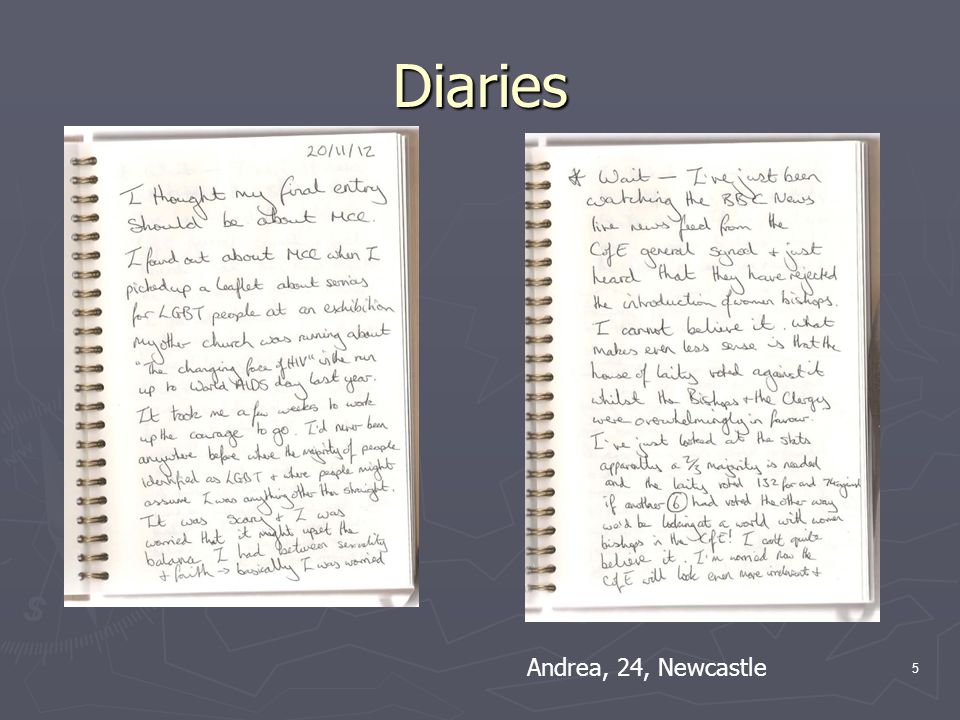 Diaries
20/11/12
I thought my final entry
should be about MCC.
I found out about MCC when I
picked up a leaflet about services
for LGBT people at an exhibition
my other church was running about
"The changing face of HIV" in the run
up to World AIDS day last year.
It took me a few weeks to work
up the courage to go. I'd never been
anywhere before where the majority of people
identified as LGBT + where people might
assume I was anything other than straight.
It was scary + I was
worried that it might upset the
balance I had between sexuality
+ faith → basically I was worried
* Wait — I've just been
watching the BBC News
live news feed from the
CofE general synod + just
heard that they have rejected
the introduction of women bishops.
I cannot believe it. What
makes even less sense is that the
house of laity voted against it
whilst the Bishops + the Clergy
were overwhelmingly in favour.
I've just looked at the stats
apparently a 2/3 majority is needed
and the laity voted 132 for and 74 against
if another 6 had voted the other way
we'd be looking at a world with women
bishops in the CofE! I can't quite
believe it. I'm worried now the
CofE will look even more irrelevant +
Andrea, 24, Newcastle
5